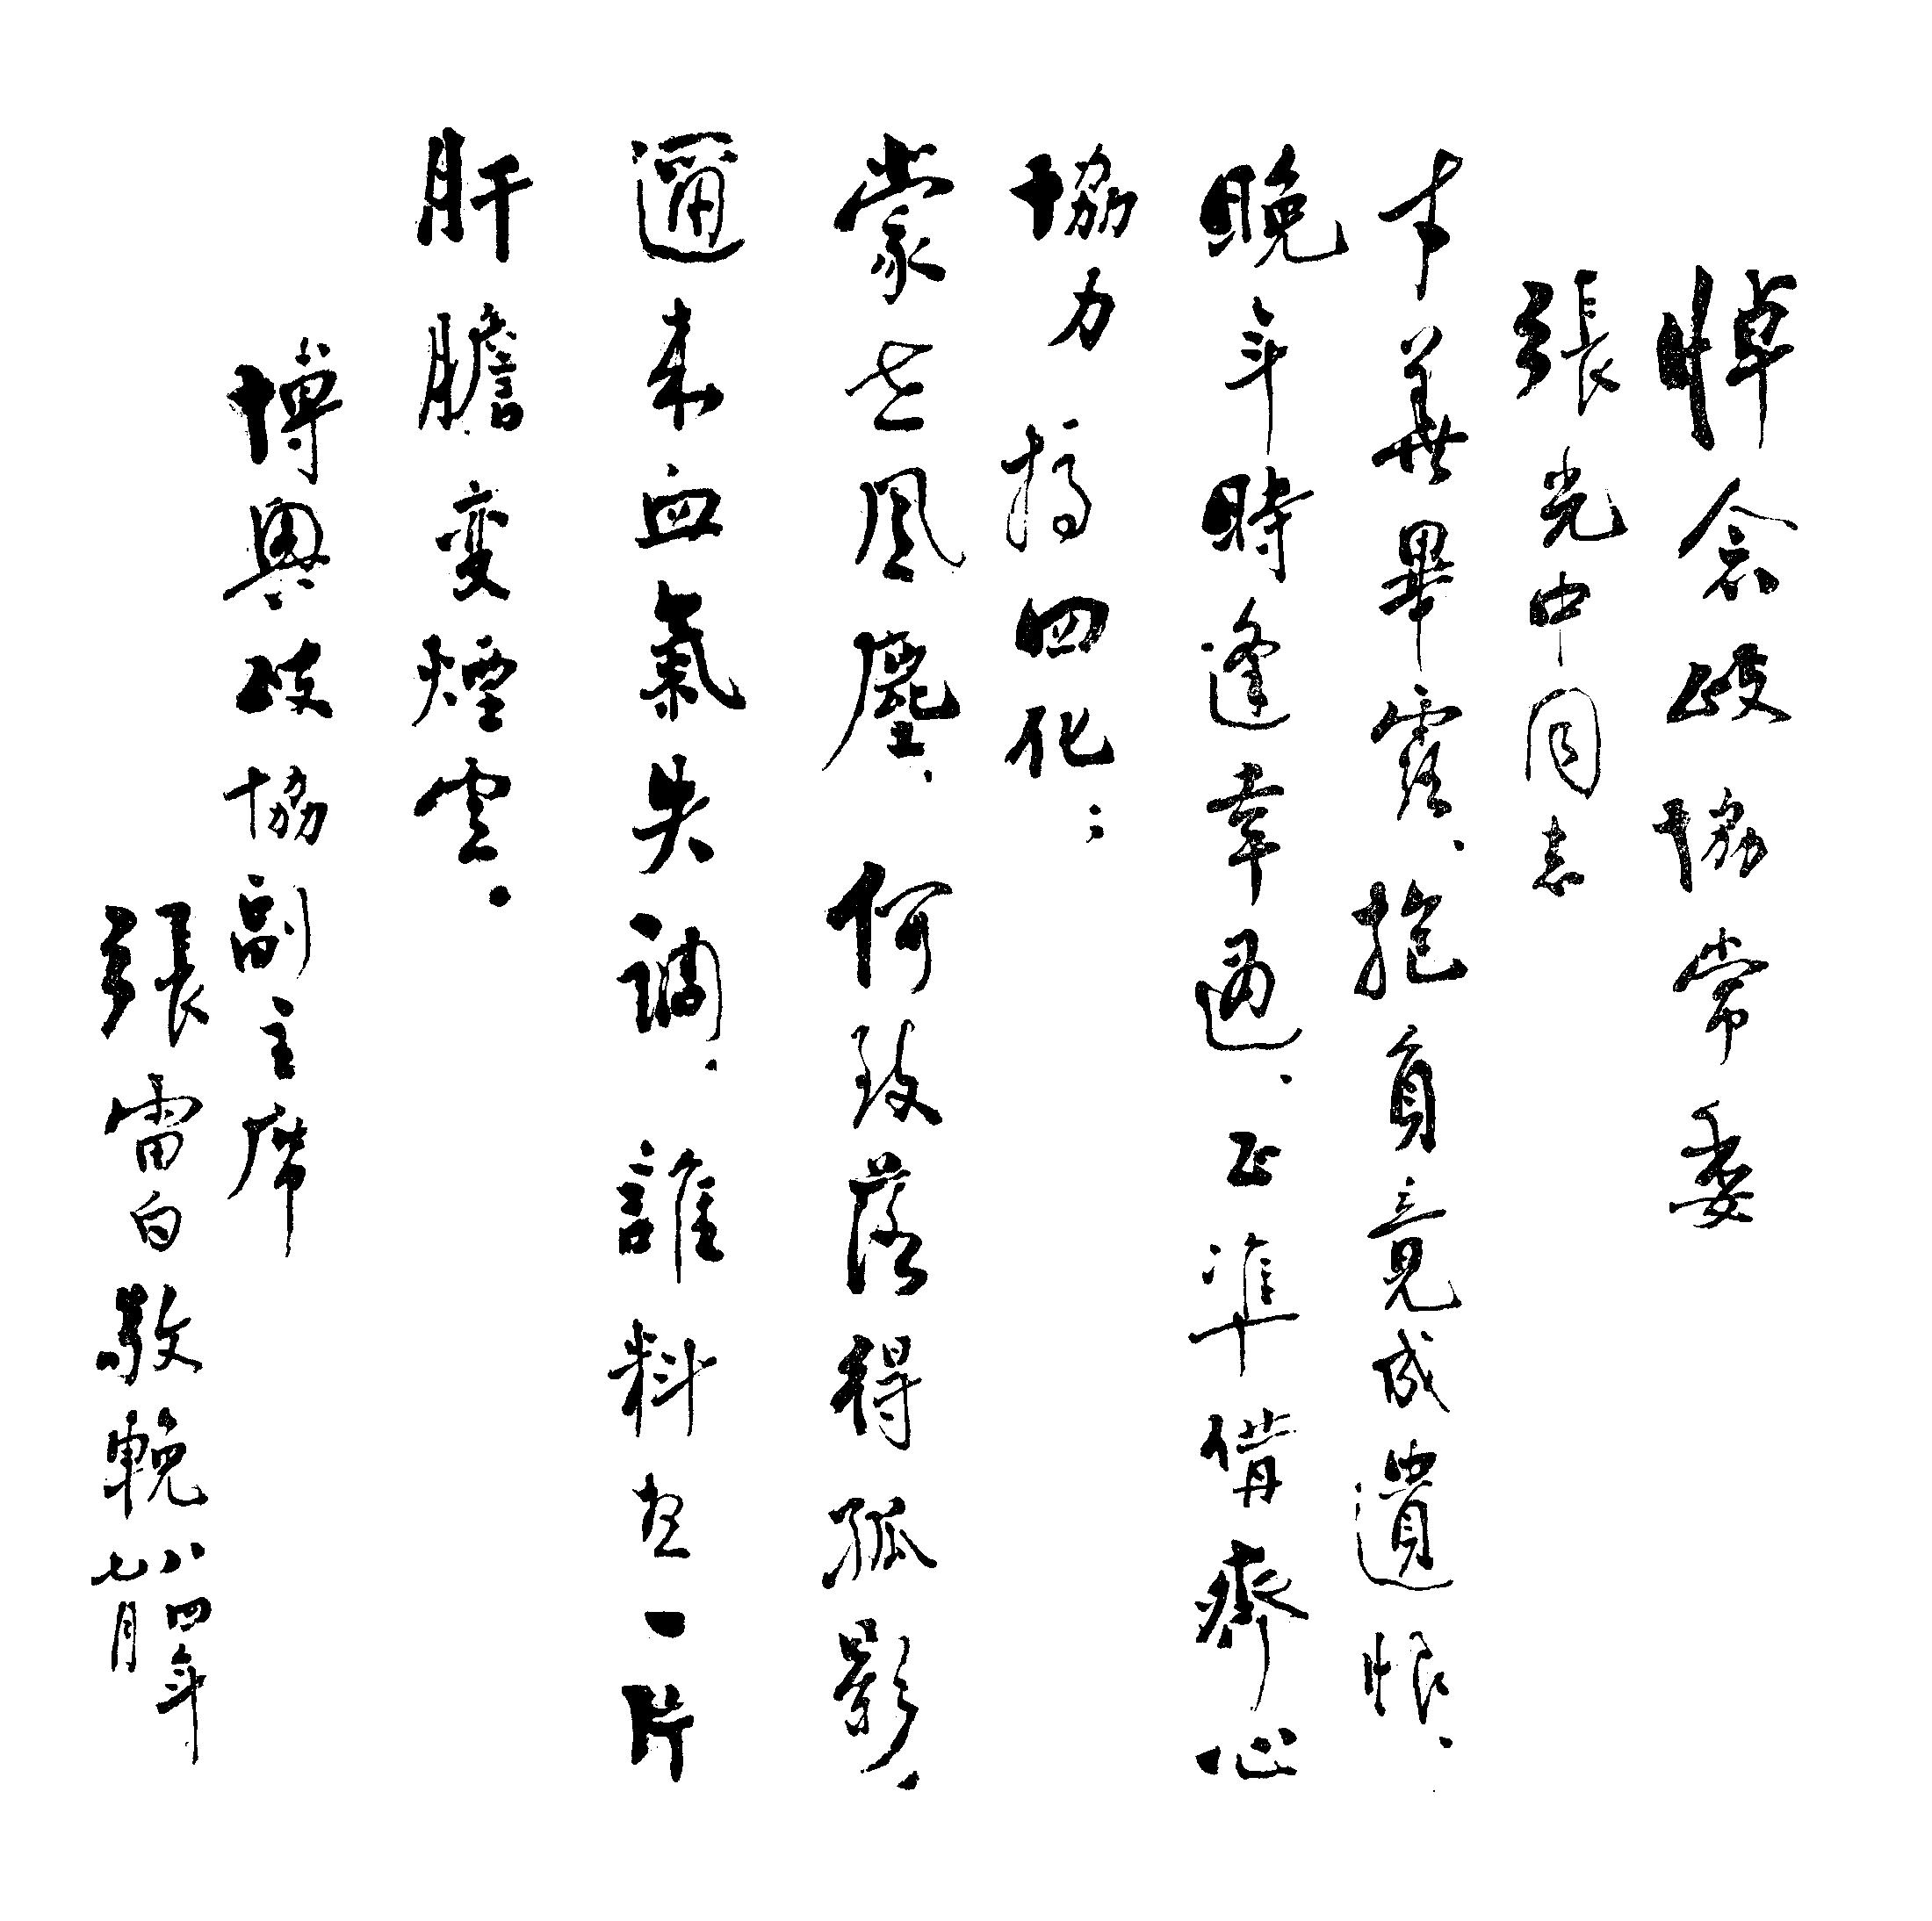 悼念政協常委
張光中同志
才華畢露、抱負竟成遺恨、
晚年時逢幸遇、正準備齊心
協力搞四化；
蒙亡風塵、何致落得孤影、
邇来血氣失調、誰料想一片
肝膽变煙雲。
博興政協副主席
張雷白敬輓 八四年
七月